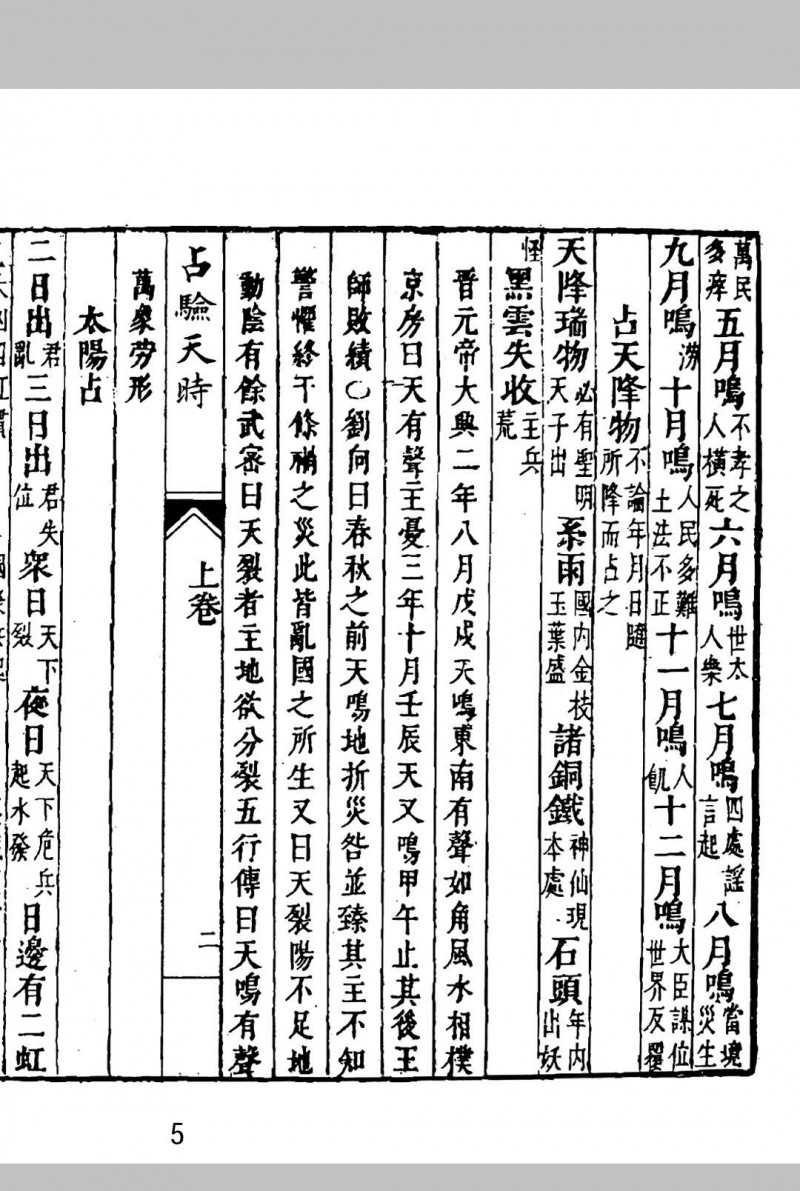 萬民多瘁五月鳴不孝之人橫死六月鳴世太人樂七月鳴四處謠言起八月鳴當境災生
九月鳴涝十月鳴人民多難土法不正十一月鳴人飢十二月鳴大臣謀位世界反覆
占天降物不論年月日隨所降而占之
天降瑞物必有聖明天子出系雨國内金枝玉葉盛諸銅鐵神仙現本處石頭年内出妖
怪黑雲失收主兵荒
晋元帝大興二年八月戊戌天鳴東南有聲如角風水相樸
京房曰天有聲主憂三年十月壬辰天又鳴甲午止其後王
師敗績○劉向曰春秋之前天鳴地折災咎並臻其主不知
警懼終干條禍之災此皆亂國之所生又曰天裂陽不足地
動陰有餘武密曰天裂者主地欲分裂五行傳曰天鳴有聲
占驗天時 上卷 二
萬衆勞形
太陽占
二日出君亂三日出君失位衆日天下裂夜日天下危兵起水發日邊有二虹
5